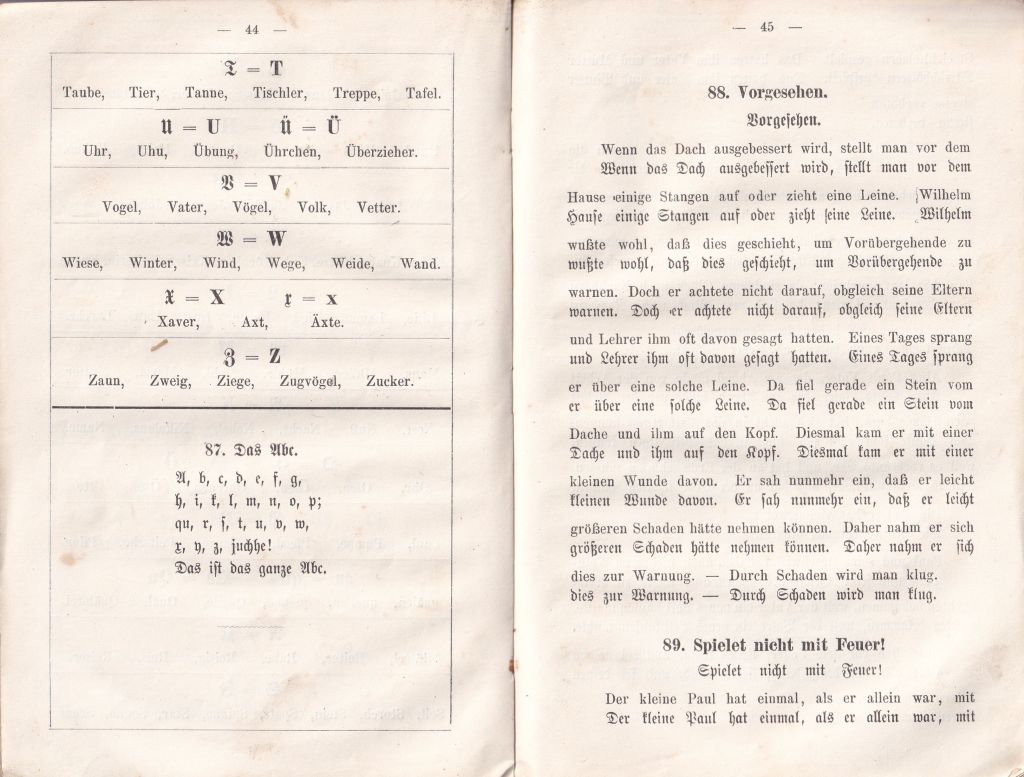 — 44 —
T = T
Taube, Tier, Tanne, Tischler, Treppe, Tafel.
U = U Ü = Ü
Uhr, Uhu, Übung, Ührchen, Überzieher.
V = V
Vogel, Vater, Vögel, Volk, Vetter.
W = W
Wiese, Winter, Wind, Wege, Weide, Wand.
X = X x = x
Xaver, Axt, Äxte.
Z = Z
Zaun, Zweig, Ziege, Zugvögel, Zucker.
87. Das Abc.
A, b, c, d, e, f, g,
h, i, k, l, m, n, o, p;
qu, r, s, t, u, v, w,
x, y, z, juchhe!
Das ist das ganze Abc.
— 45 —
88. Vorgesehen.
Vorgesehen.
Wenn das Dach ausgebessert wird, stellt man vor dem
Wenn das Dach ausgebessert wird, stellt man vor dem
Hause einige Stangen auf oder zieht eine Leine. Wilhelm
Hause einige Stangen auf oder zieht seine Leine. Wilhelm
wußte wohl, daß dies geschieht, um Vorübergehende zu
wußte wohl, daß dies geschieht, um Vorübergehende zu
warnen. Doch er achtete nicht darauf, obgleich seine Eltern
warnen. Doch er achtete nicht darauf, obgleich seine Eltern
und Lehrer ihm oft davon gesagt hatten. Eines Tages sprang
und Lehrer ihm oft davon gesagt hatten. Eines Tages sprang
er über eine solche Leine. Da fiel gerade ein Stein vom
er über eine solche Leine. Da fiel gerade ein Stein vom
Dache und ihm auf den Kopf. Diesmal kam er mit einer
Dache und ihm auf den Kopf. Diesmal kam er mit einer
kleinen Wunde davon. Er sah nunmehr ein, daß er leicht
kleinen Wunde davon. Er sah nunmehr ein, daß er leicht
größeren Schaden hätte nehmen können. Daher nahm er sich
größeren Schaden hätte nehmen können. Daher nahm er sich
dies zur Warnung. — Durch Schaden wird man klug.
dies zur Warnung. — Durch Schaden wird man klug.
89. Spielet nicht mit Feuer!
Spielet nicht mit Feuer!
Der kleine Paul hat einmal, als er allein war, mit
Der kleine Paul hat einmal, als er allein war, mit